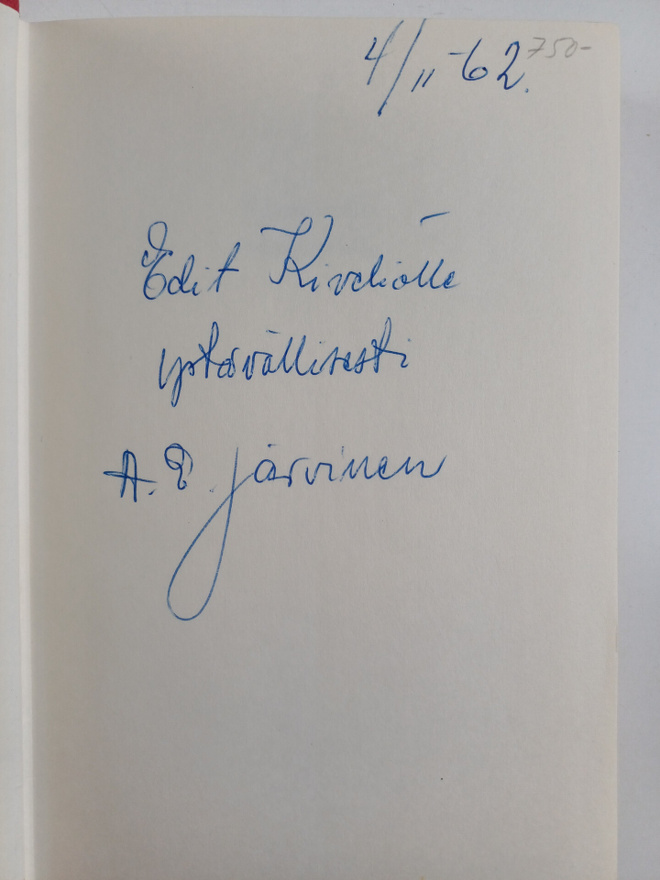 4/11-62. 750-
Edit Kiveliölle
ystävällisesti
A. E. Järvinen